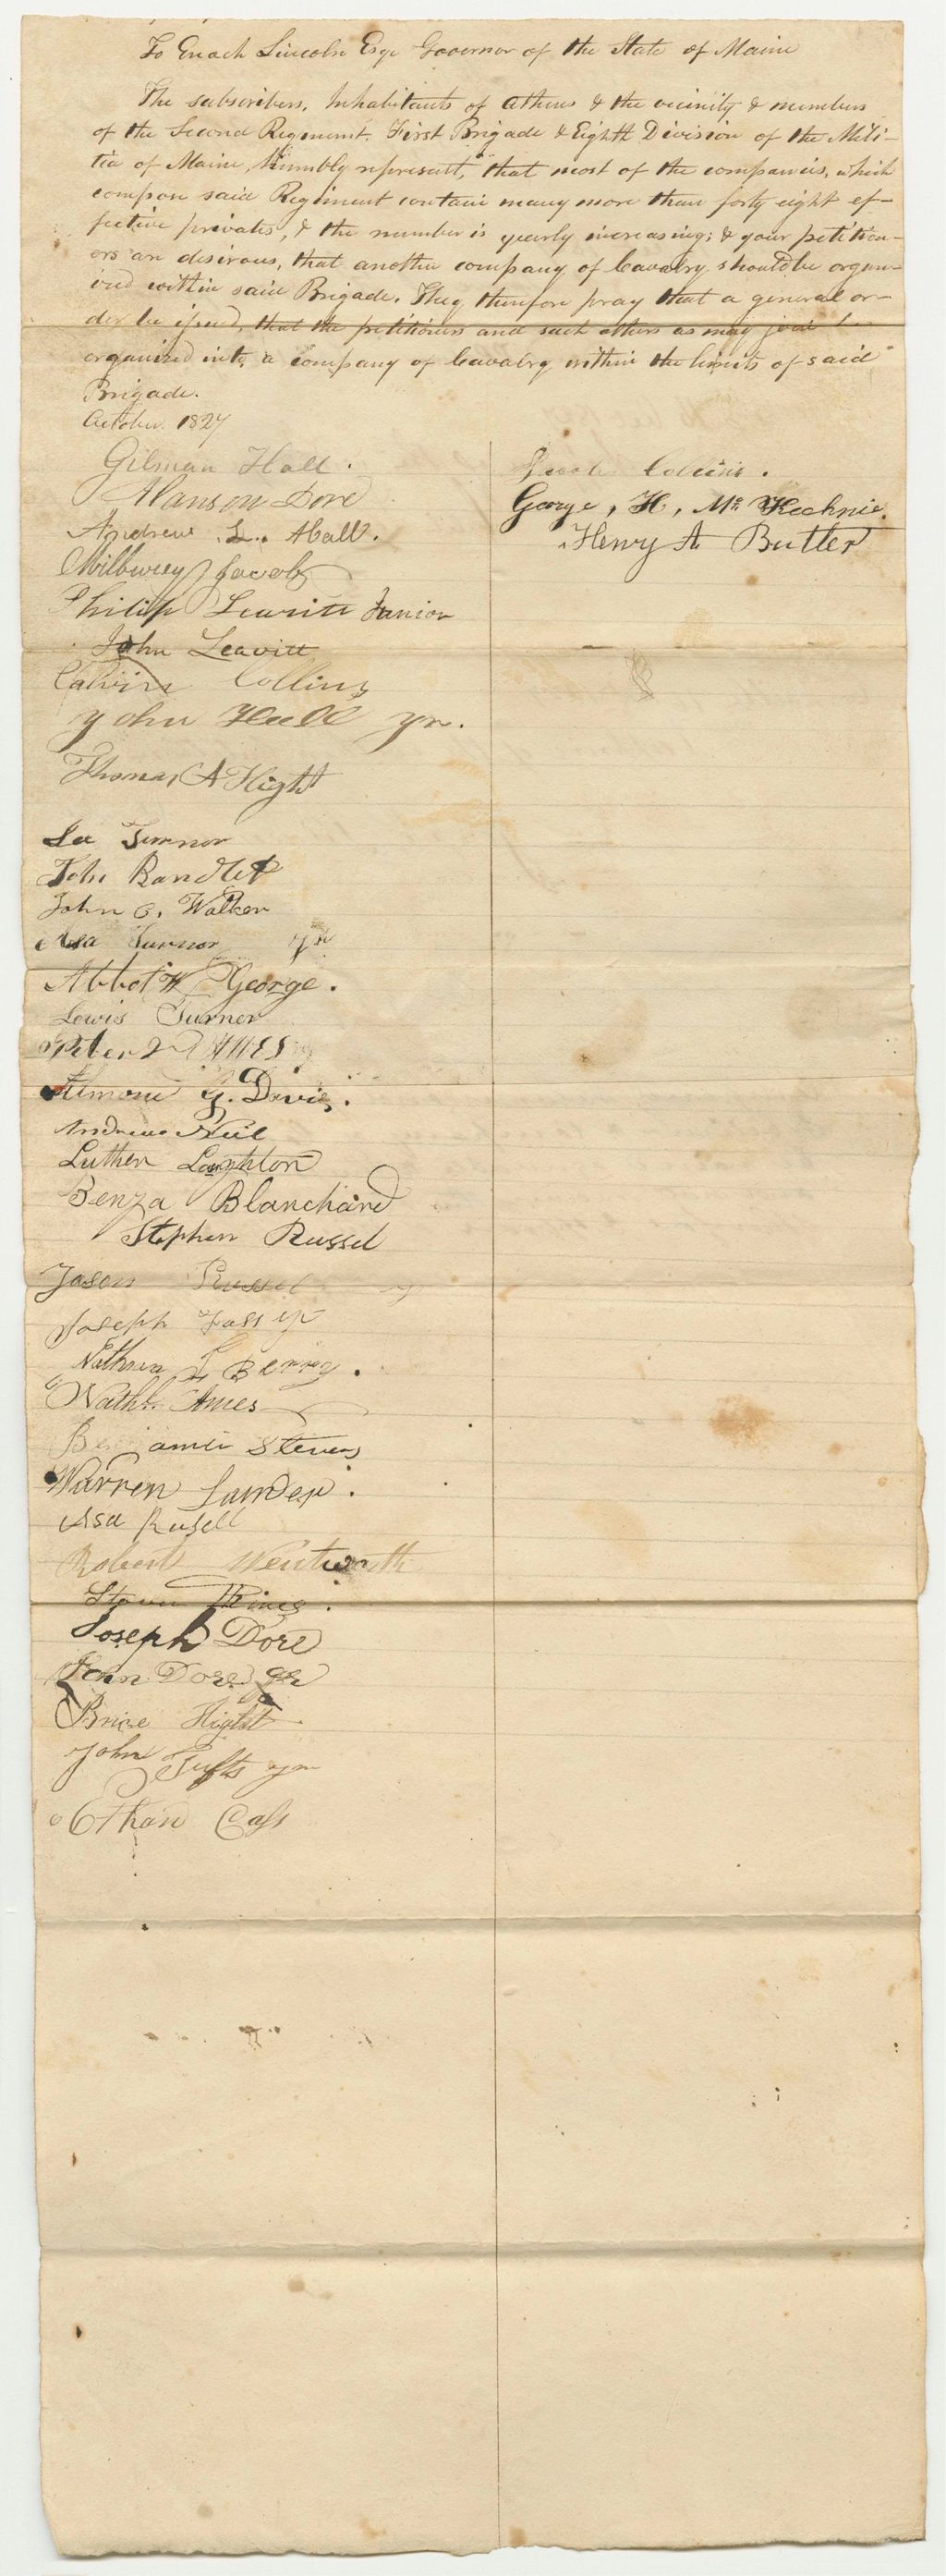 To Enoch Lincoln Esqr Governor of the State of Maine
The subscribers, Inhabitants of Athens & the vicinity & members
of the Second Regiment, First Brigade & Eighth Division of the Mili-
tia of Maine, humbly represent, that most of the companies, which
compose said Regiment contain many more than forty eight ef-
fective privates, & the number is yearly increasing; & your petition-
ers are desirous, that another company of Cavalry should be organ-
ized within said Brigade. They therefore pray that a general or-
der be issued, that the petitioners and such others as may join be
organized into a company of Cavalry within the limits of said
Brigade.
October 1827
Gilman Hall.
Alanson Dore
Andrew L. Hall.
Milbury Jacobs
Philip Leavitt Junior
John Leavitt
Calvin Collins
John Hall Jr.
Thomas A Hight
Turnor
John Randlet
John C. Walker
Asa Turnor Jr
Abbot W George.
Lewis Turner
Peter
G. Davis.
Andrew Neil
Luther Laughton
Benza Blanchard
Stephen Russel
Jason Russel
Joseph Foss Jr
Nathan F Berry.
Nathl. Ames
Benjamin Stevens
Warren Lander.
Asa Russell
Robert Wentworth
Hines.
Joseph Dore
John Dore Jr
Brice Hight
John Tufts Jr
Ethan Cass
Collins.
George, H, Mc Kechnie.
Henry A Butler